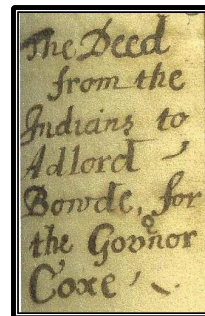 The Deed
from the
Indians to
Adlord
Bowde, for
the Govnor
Coxe